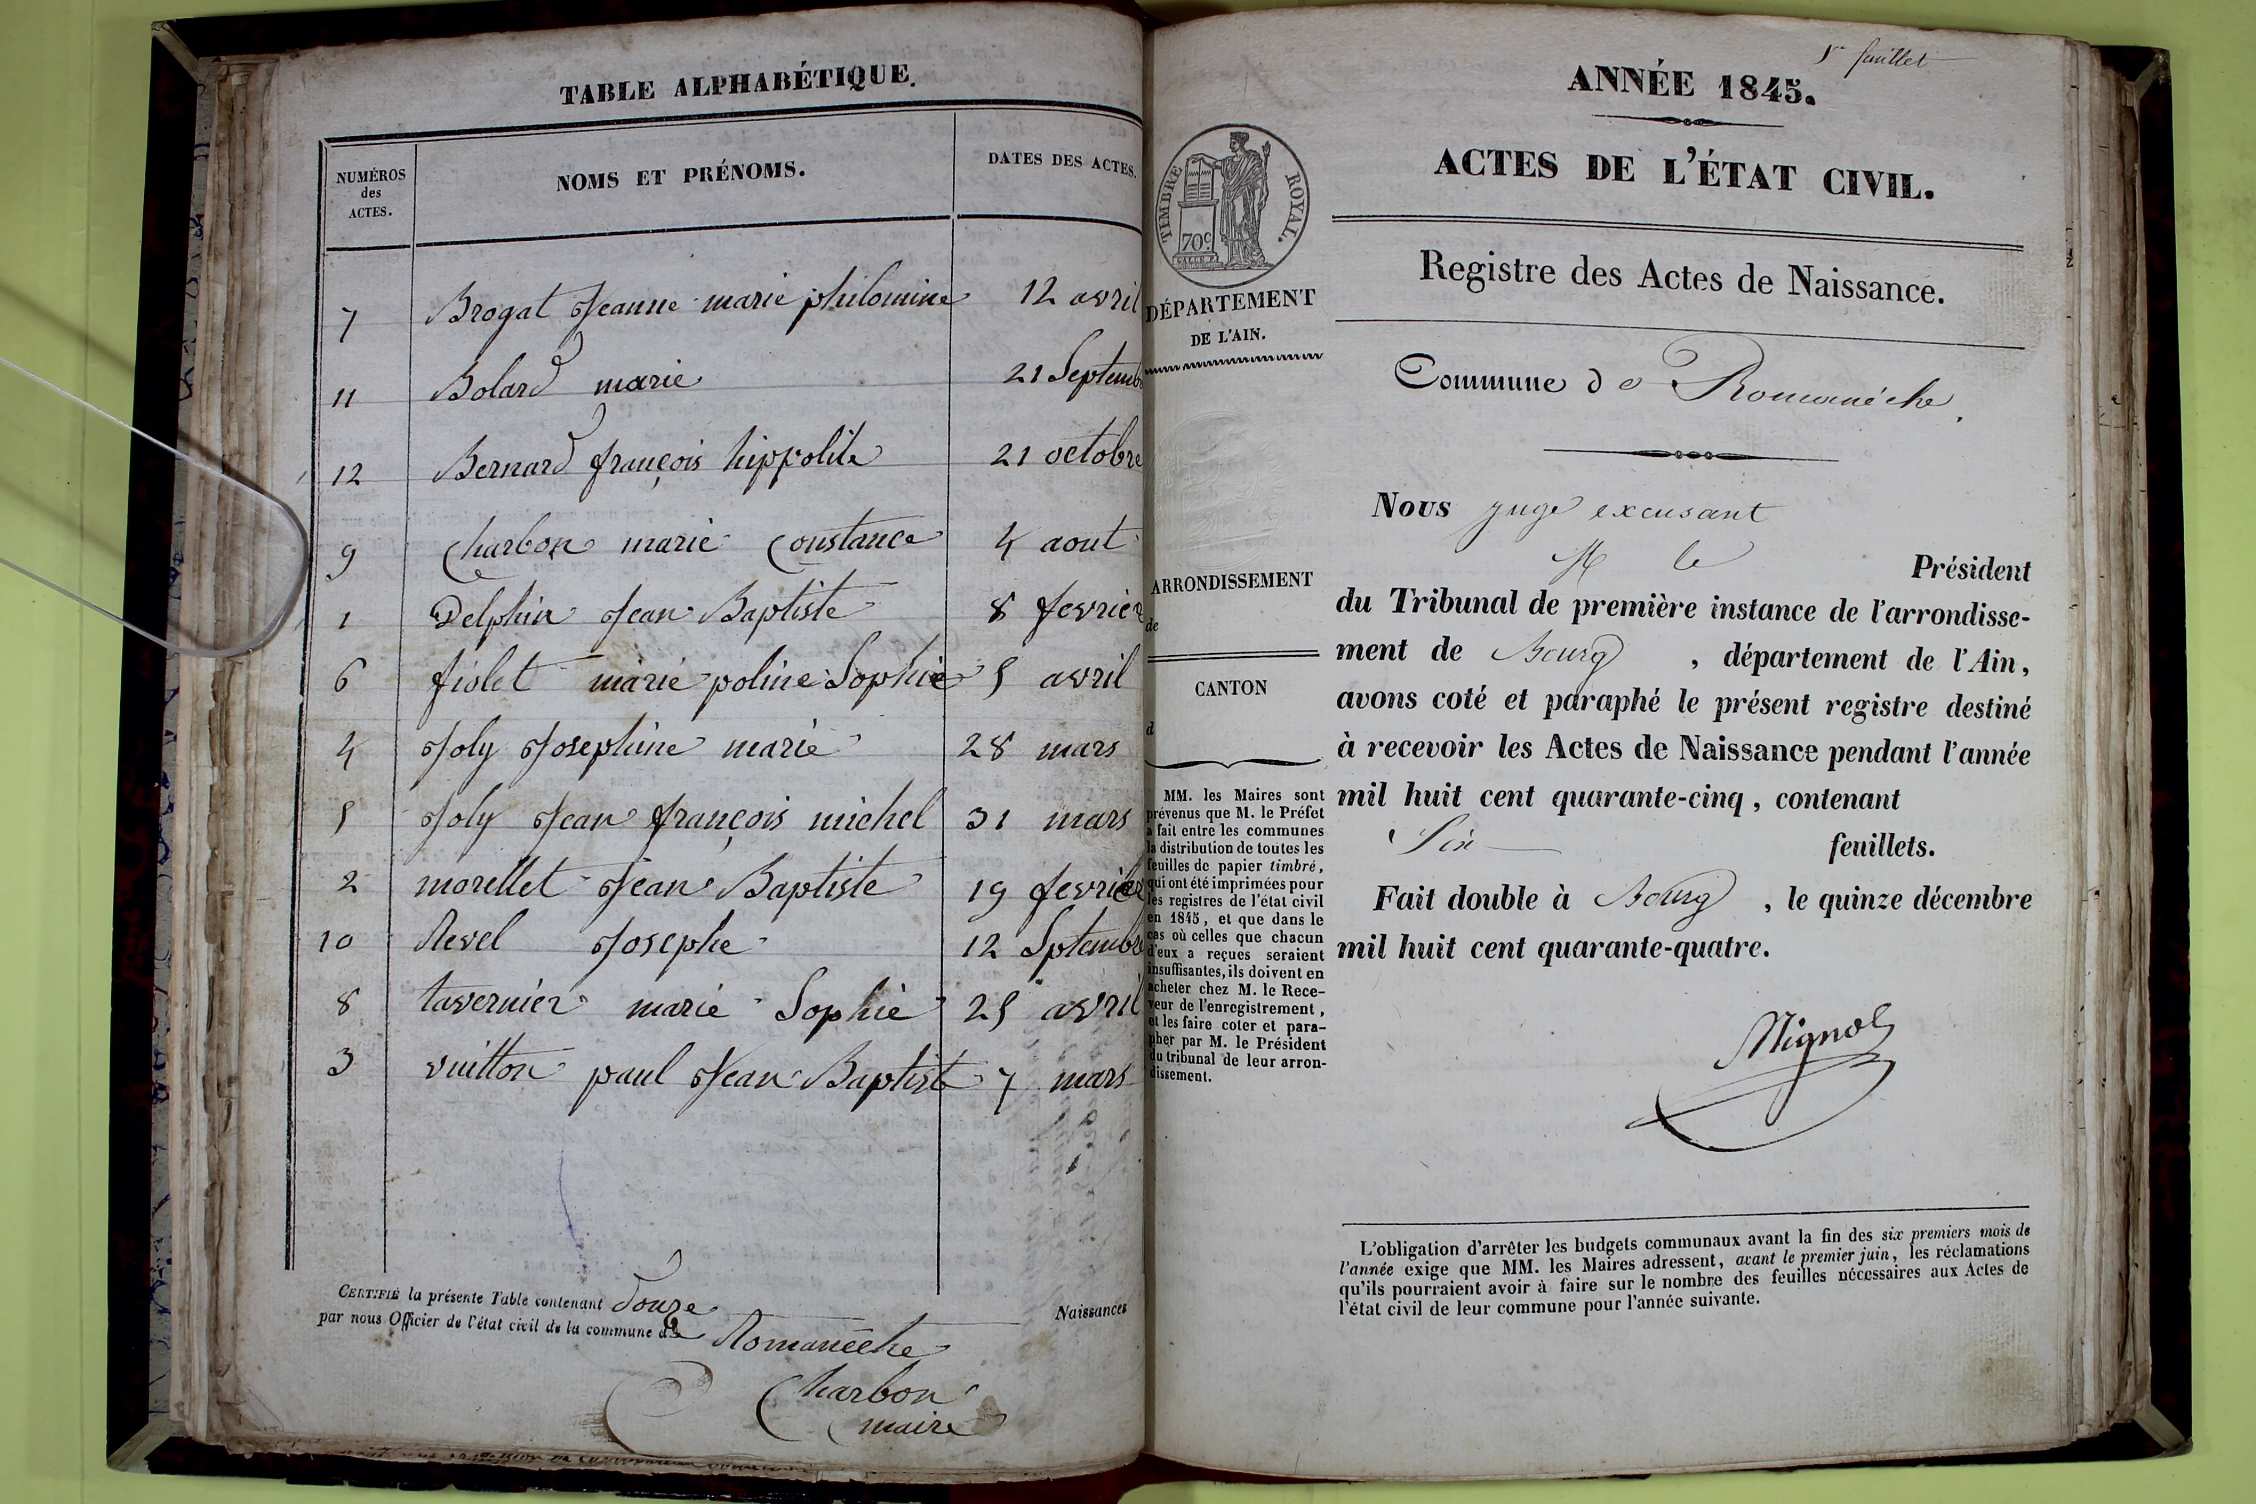 TABLE ALPHABÉTIQUE.
NUMÉROS
des
ACTES.
NOMS ET PRÉNOMS.
DATES DES ACTES.
7 Brogat Jeanne marie philomine 12 avril
11 Bolard marie 21 Septemb
12 Bernard françois hippolite 21 octobre
9 Charbon marie Constance 4 aout
1 Delphin Jean Baptiste 8 fevrier
6 fiolet marie poline Sophie 5 avril
4 Joly Josephine marie 28 mars
5 Joly Jean françois michel 31 mars
2 morellet Jean Baptiste 19 fevrier
10 Revel Josephe 12 Sptembre
8 tavernier marie Sophie 25 avril
3 vuitton paul Jean Baptiste 7 mars
CERTIFIÉ la présente Table contenant douze Naissances
par nous Officier de l'état civil de la commune de Romanèche
Charbon
maire
1er feuillet
ANNÉE 1845.
ACTES DE L'ÉTAT CIVIL.
TIMBRE ROYAL.
70c
DÉPARTEMENT
DE L'AIN.
Registre des Actes de Naissance.
Commune de Romanéche.
Nous juge excusant
M le Président
ARRONDISSEMENT
de
CANTON
d
du Tribunal de première instance de l'arrondisse-
ment de Bourg, département de l'Ain,
avons coté et paraphé le présent registre destiné
à recevoir les Actes de Naissance pendant l'année
mil huit cent quarante-cinq, contenant
Six feuillets.
Fait double à Bourg, le quinze décembre
mil huit cent quarante-quatre.
MM. les Maires sont
prévenus que M. le Préfet
a fait entre les communes
la distribution de toutes les
feuilles de papier timbré,
qui ont été imprimées pour
les registres de l'état civil
en 1845, et que dans le
cas où celles que chacun
d'eux a reçues seraient
insuffisantes, ils doivent en
acheter chez M. le Rece-
veur de l'enregistrement,
et les faire coter et para-
pher par M. le Président
du tribunal de leur arron-
dissement.
Mignot
L'obligation d'arrêter les budgets communaux avant la fin des six premiers mois de
l'année exige que MM. les Maires adressent, avant le premier juin, les réclamations
qu'ils pourraient avoir à faire sur le nombre des feuilles nécessaires aux Actes de
l'état civil de leur commune pour l'année suivante.